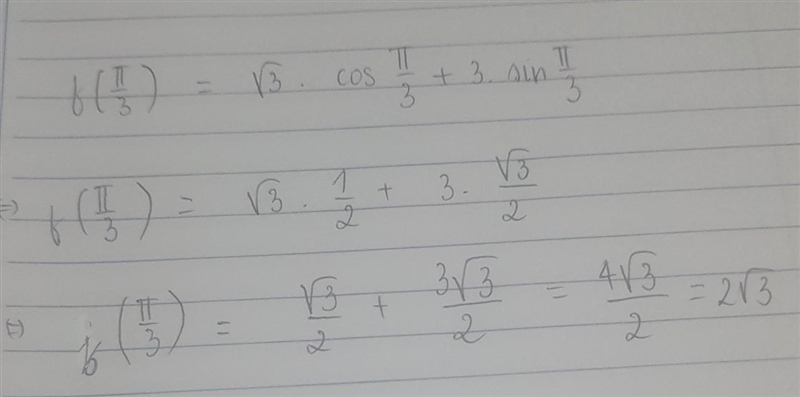 f(π/3) = √3 . cos π/3 + 3. sin π/3
=) f(π/3) = √3 . 1/2 + 3. √3/2
(=) f(π/3) = √3/2 + 3√3/2 = 4√3/2 = 2√3